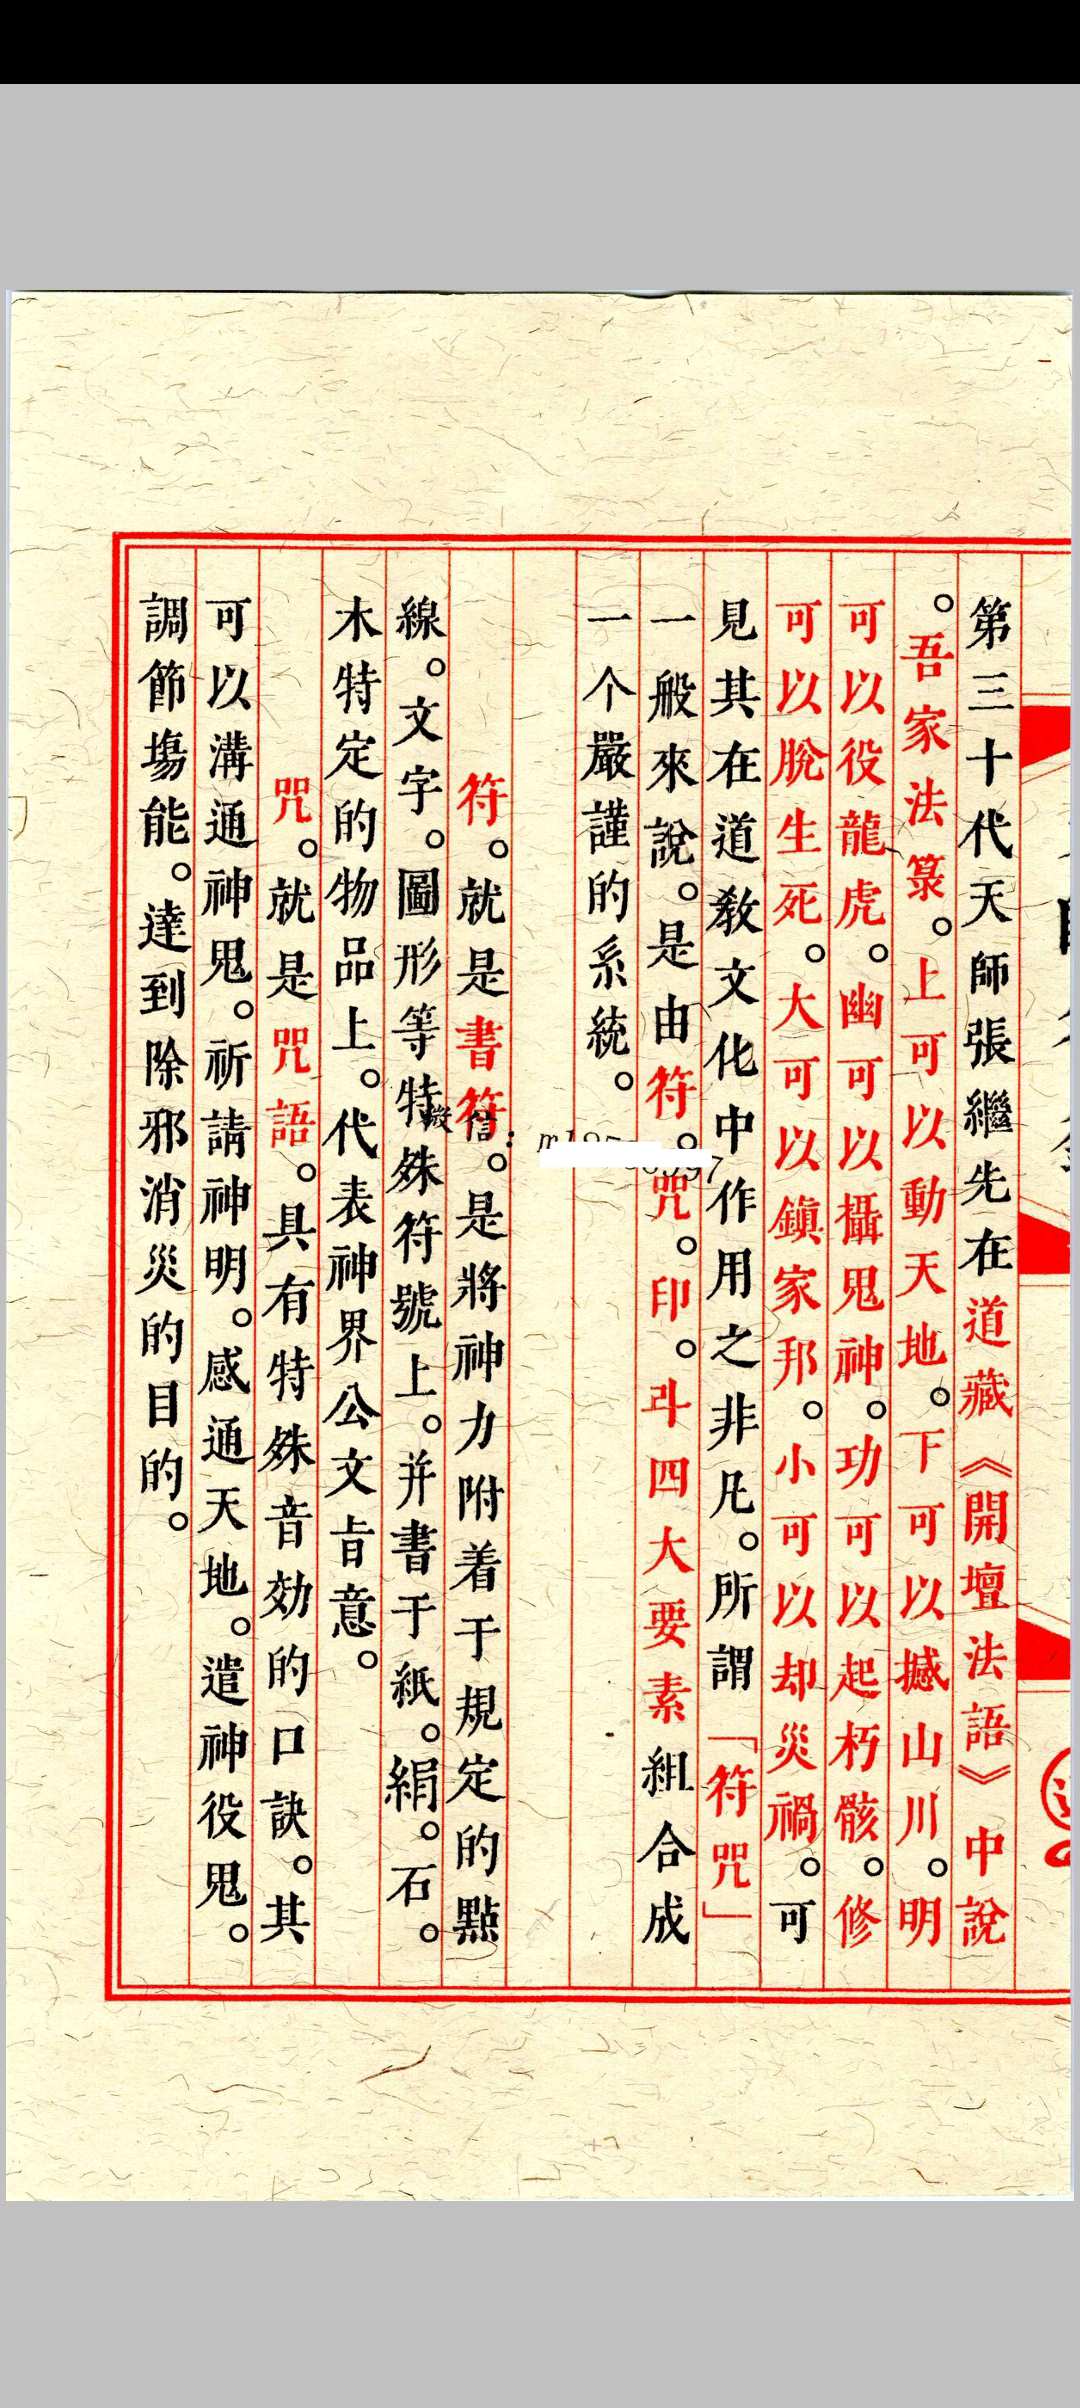 第三十代天師張繼先在道藏《開壇法語》中說
。吾家法箓。上可以動天地。下可以撼山川。明
可以役龍虎。幽可以攝鬼神。功可以起朽骸。修
可以脫生死。大可以鎮家邦。小可以却災禍。可
見其在道教文化中作用之非凡。所謂「符咒」
一般來說。是由符。咒。印。斗四大要素組合成
一个嚴謹的系統。
符。就是書符。是將神力附着于規定的點
線。文字。圖形等特殊符號上。并書于紙。絹。石。
木特定的物品上。代表神界公文旨意。
咒。就是咒語。具有特殊音効的口訣。其
可以溝通神鬼。祈請神明。感通天地。遣神役鬼。
調節塲能。達到除邪消災的目的。
微信: